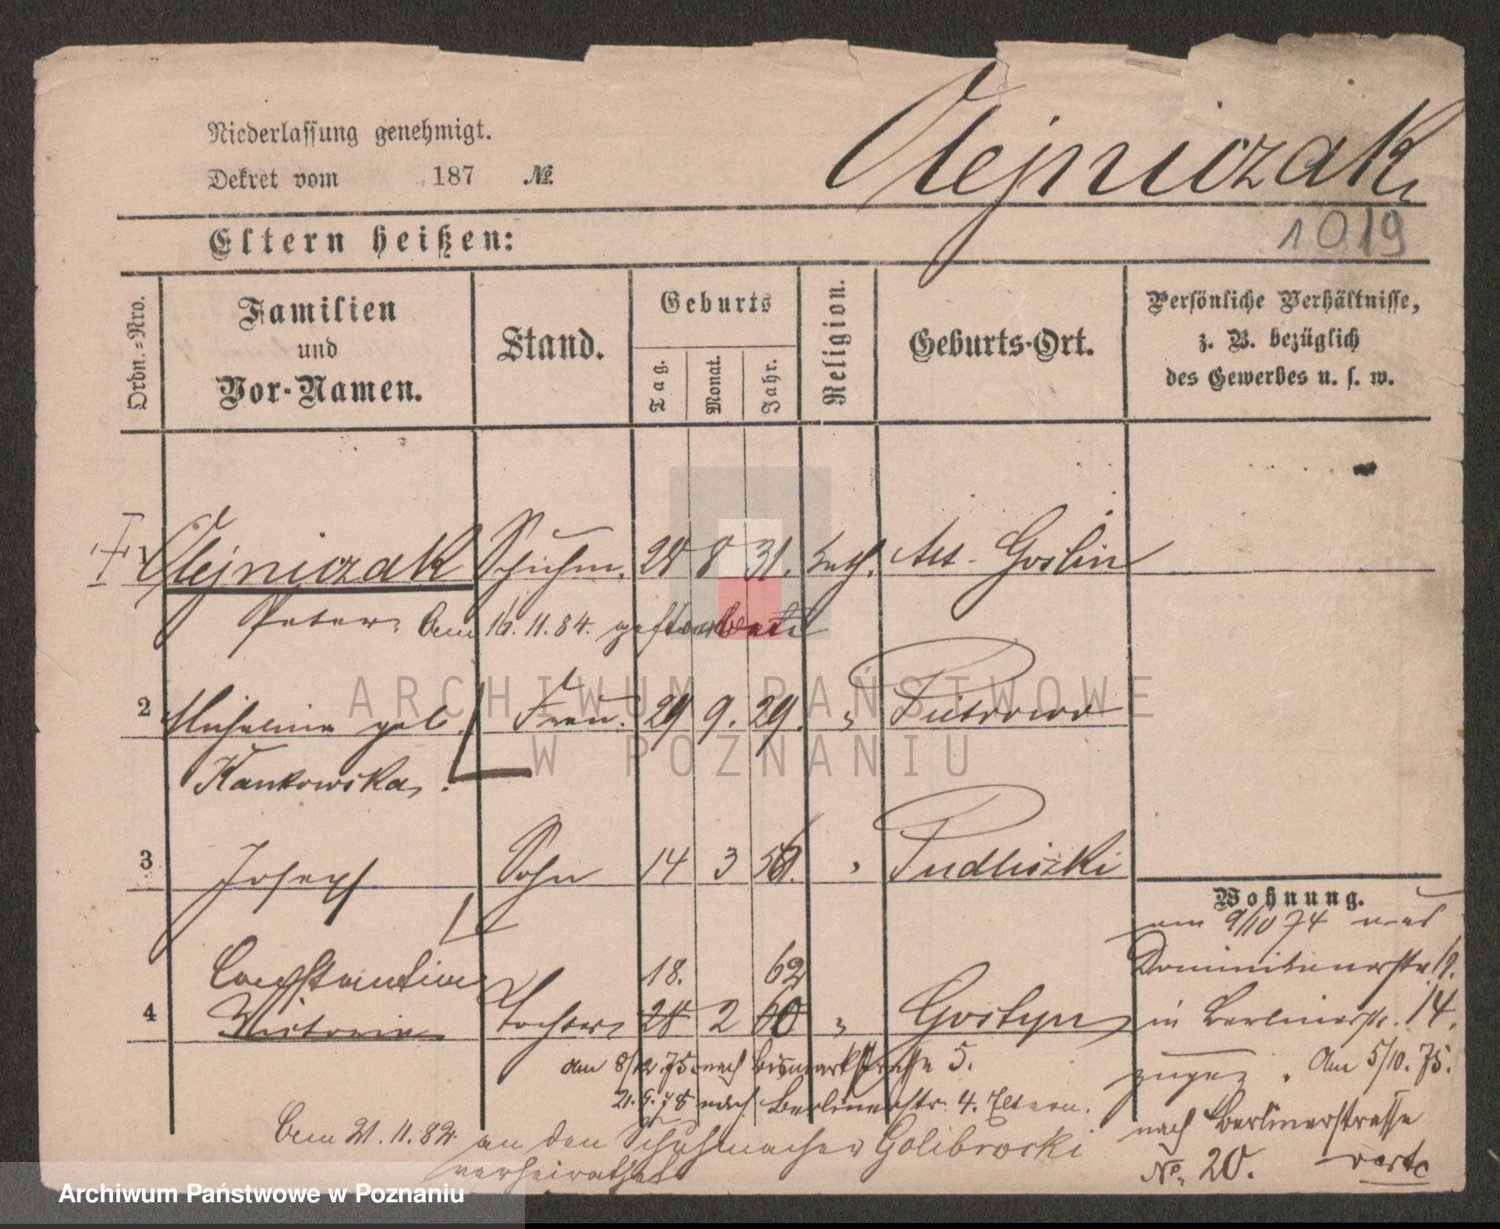 Niederlassung genehmigt.
Dekret vom 187 №.
Olejniczak
1019
Eltern heißen:
Ordn.=Nro.
Familien
und
Vor-Namen.
Stand.
Geburts
Tag.
Monat.
Jahr.
Religion.
Geburts-Ort.
Persönliche Verhältnisse,
z. B. bezüglich
des Gewerbes u. s. w.
1 Olejniczak Schuhm. 28 8 31. kath. Alt-Goslin
Peter. Am 16.11.84. gestorben
ARCHIWUM PAŃSTWOWE
W POZNANIU
2 geb. Frau. 29 9. 29. "
Kankowska.
3 Joseph Sohn 14 3 " Pudliszki
Wohnung.
am 9/10 74 aus
Dominikanerstr.
Constantine 18. 62
4 Victoria Tochter 28 2 60 " Gostyn
in Berlinerstr. 14.
am 8/12.75. nach Bismarkstrasse 5.
zugez. Am 5/10.75.
21.9.78 nach Berlinerstr. 4. Eltern.
nach Berlinerstrasse
Am 21.11.82. an den Schuhmacher Golibrocki
verheirathet
No. 20. verte
Archiwum Państwowe w Poznaniu